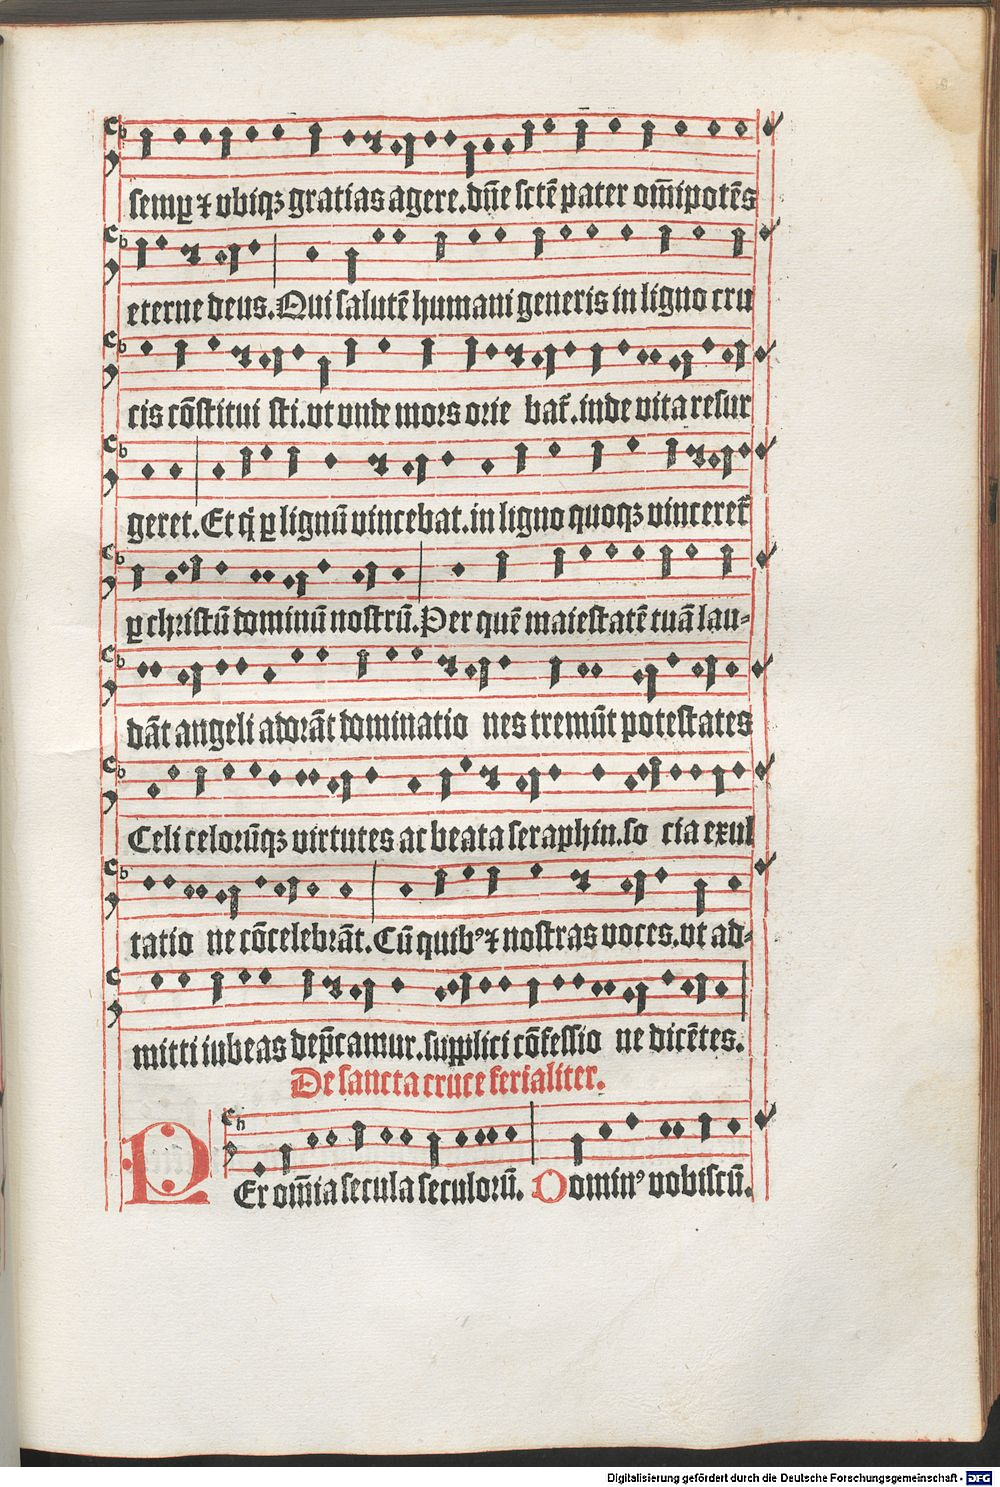 semꝑ ⁊ vbiqꝫ gratias agere. dn̄e sctē pater om̄ipotēs
eterne deus. Qui salutē humani generis in ligno cru
cis cōstitui sti. vt vnde mors orie bat᷑. inde vita resur
geret. Et q̇ ꝑ lignū vincebat. in ligno quoqꝫ vinceret᷑
ꝑ christū dominū nostrū. Per quē maiestatē tuā lau-
dāt angeli adorāt dominatio nes tremūt potestates
Celi celorūqꝫ virtutes ac beata seraphin. so cia exul
tatio ne cōcelebrāt. Cū quibꝰ ⁊ nostras voces. vt ad-
mitti iubeas dep̄camur. supplici cōfessio ne dicētes.
De sancta cruce ferialiter.
PEr om̄ia secula seculorū. Dominꝰ vobiscū.
Digitalisierung gefördert durch die Deutsche Forschungsgemeinschaft - DFG